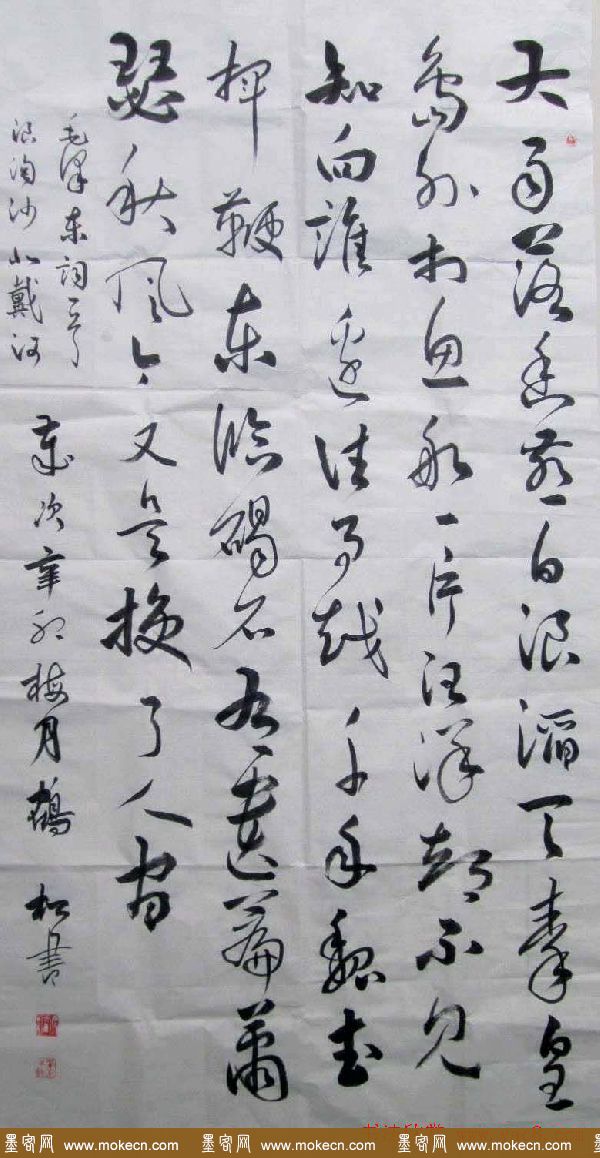 大雨落幽燕白浪滔天秦皇
島外打魚船一片汪洋都不見
知向誰邊往事越千年魏武
揮鞭東臨碣石有遺篇蕭
瑟秋風今又是換了人間
毛澤東詞一首
浪淘沙北戴河
歲次辛卯梅月鶴松書
墨客网 www.mokecn.com 墨客网 www.mokecn.com 墨客网 www.mokecn.com